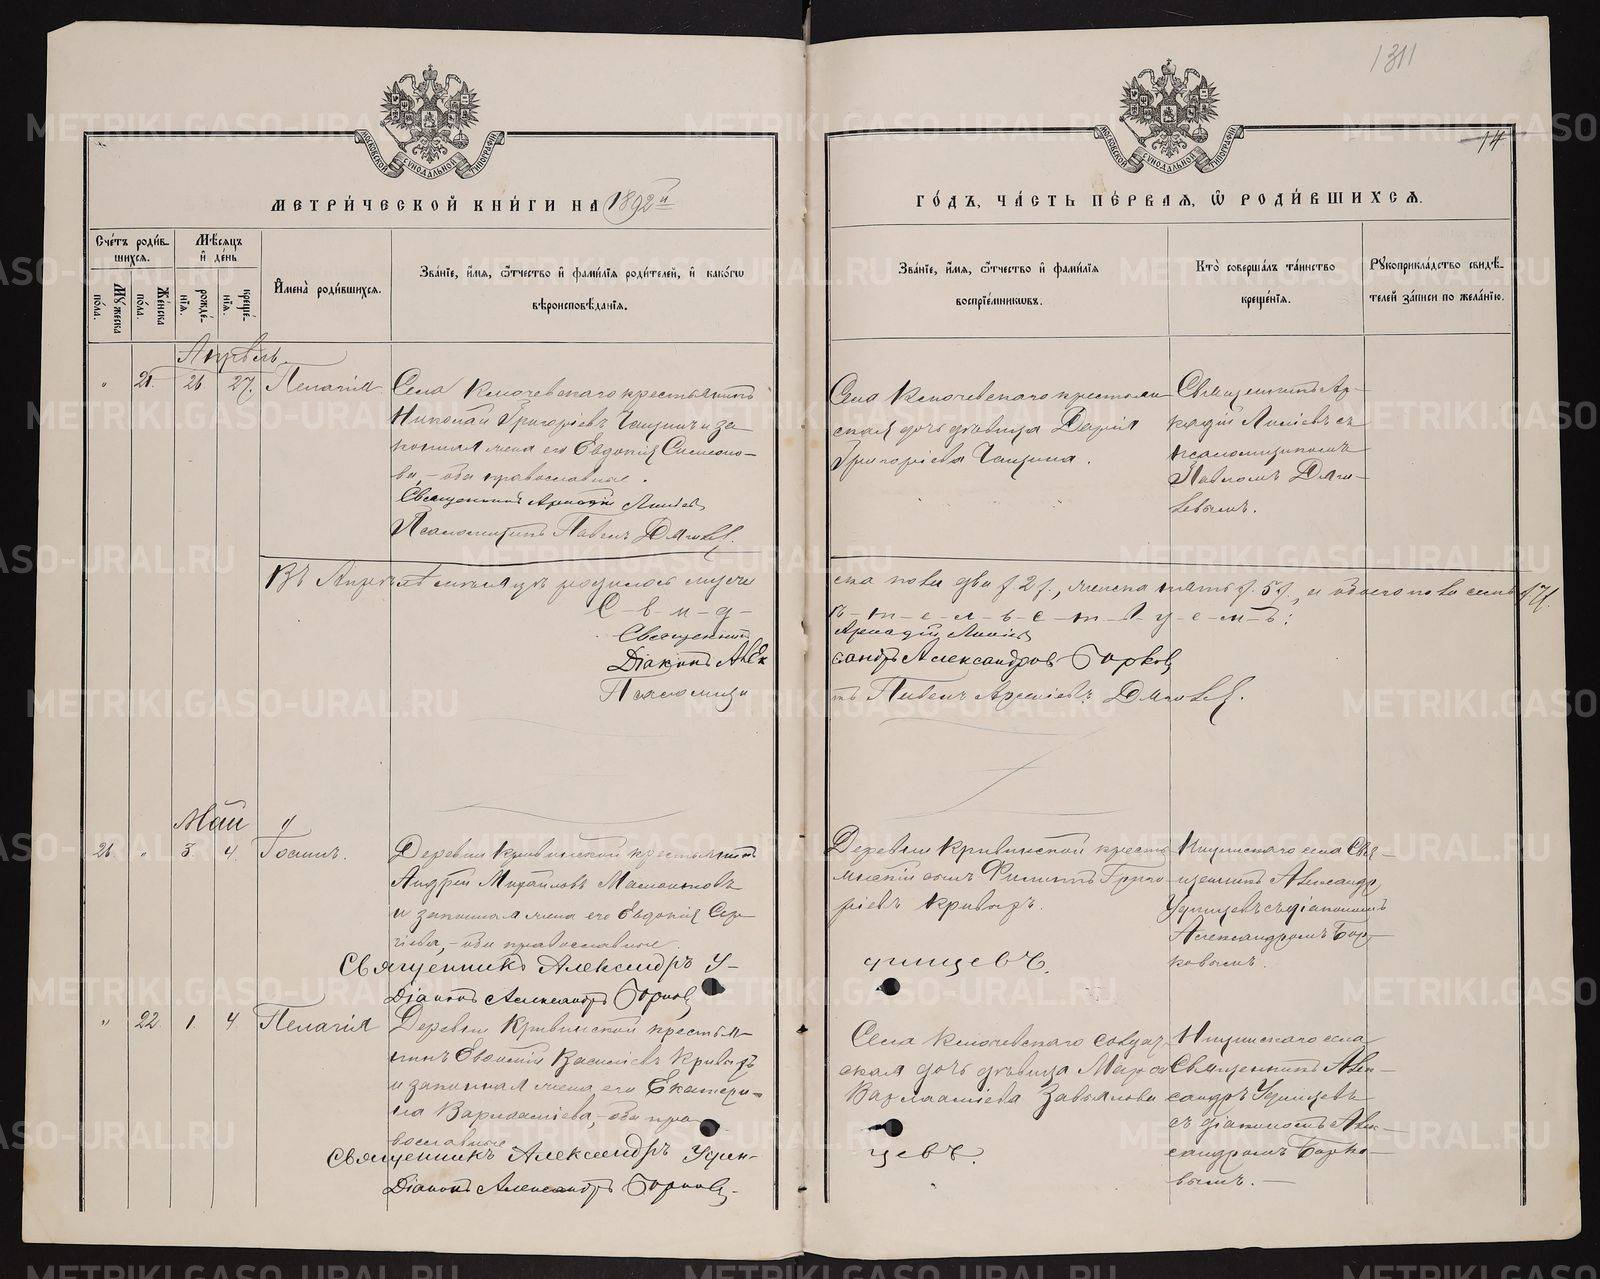 1311
14
МОСКОВСКОЙ СѴНОДАЛЬНОЙ ТИПОГРАФІИ
МОСКОВСКОЙ СѴНОДАЛЬНОЙ ТИПОГРАФІИ
МЕТРИ́ЧЕСКОЙ КНИ́ГИ НА 1892й
ГО́ДЪ, ЧА́СТЬ ПЕ́РВАЯ, Ѡ РОДИ́ВШИХСЯ.
Сче́тъ роди́в-
шихся.
Мѣ́сяцъ
и де́нь
Му́жеска
по́ла.
Же́нска
по́ла.
рожде́-
нїя.
креще́-
нїя.
И́мена роди́вшихся.
Зва́нїе, и́мя, ѻ́тчество и фами́лїя роди́телей, и како́гѡ
вѣроисповѣ́данїя.
Зва́нїе, и́мя, ѻ́тчество и фами́лїя
воспрїе́мникѡвъ.
Кто̀ соверша́лъ та́инство
креще́нїя.
Рꙋкоприкла́дство свидѣ́-
телей за́писи по жела́нїю.
Апрѣль.
" 21. 26 27. Пелагія
Села Ключевскаго крестьянинъ
Николай Григоріевъ Чащинъ и за-
конная жена его Евдокія Симеоно-
ва, – оба православные.
Священникъ Аркадій
Псаломщикъ Павелъ
Села Ключевскаго крестьян-
ская дочь дѣвица Дарія
Григоріева Чащина.
Священникъ Ар-
кадій съ
псаломщикомъ
Павломъ Дяги-
левымъ.
Въ Апрѣлѣ мѣсяцѣ родилось муже
ска пола два /2/, женска пять /5/, и обоего пола семь /7/.
С-в-и-д-
ѣ-т-е-л-ь-с-т-в-у-е-м-ъ:
Священникъ
Аркадій
Діаконъ Алек
сандръ Александровъ Борков
Псаломщи
къ Павелъ
Май
26. " 3. 4. Іоаннъ.
Деревни Кривинской крестьянинъ
Андрей Михайловъ
и законная жена его Евдокія Сер-
гіева, – оба православные.
Священникъ Александръ У-
динцевъ.
Діаконъ Александръ Борков
Деревни Кривинской кресть-
янскій сынъ Филиппъ Григо-
ріевъ Кривыхъ.
Ницинскаго села Свя-
щенникъ Александръ
Удинцевъ съ діакономъ
Александромъ Бор-
ковымъ.
" 22. 1. 4. Пелагія
Деревни Кривинской крестья-
нинъ Евѳимій Василіевъ Кривыхъ
и законная жена его Екатери-
на Варлааміева, – оба пра-
вославные
Священникъ Александръ Удин-
цевъ.
Діаконъ Александръ Борков
Села Ключевскаго солдат-
ская дочь дѣвица Марѳа
Варлааміева Завьялова
Ницинскаго села
Священникъ Алек-
сандръ Удинцевъ
съ діакономъ Алек-
сандромъ Борко-
вымъ. –
METRIKI.GASO-URAL.RU